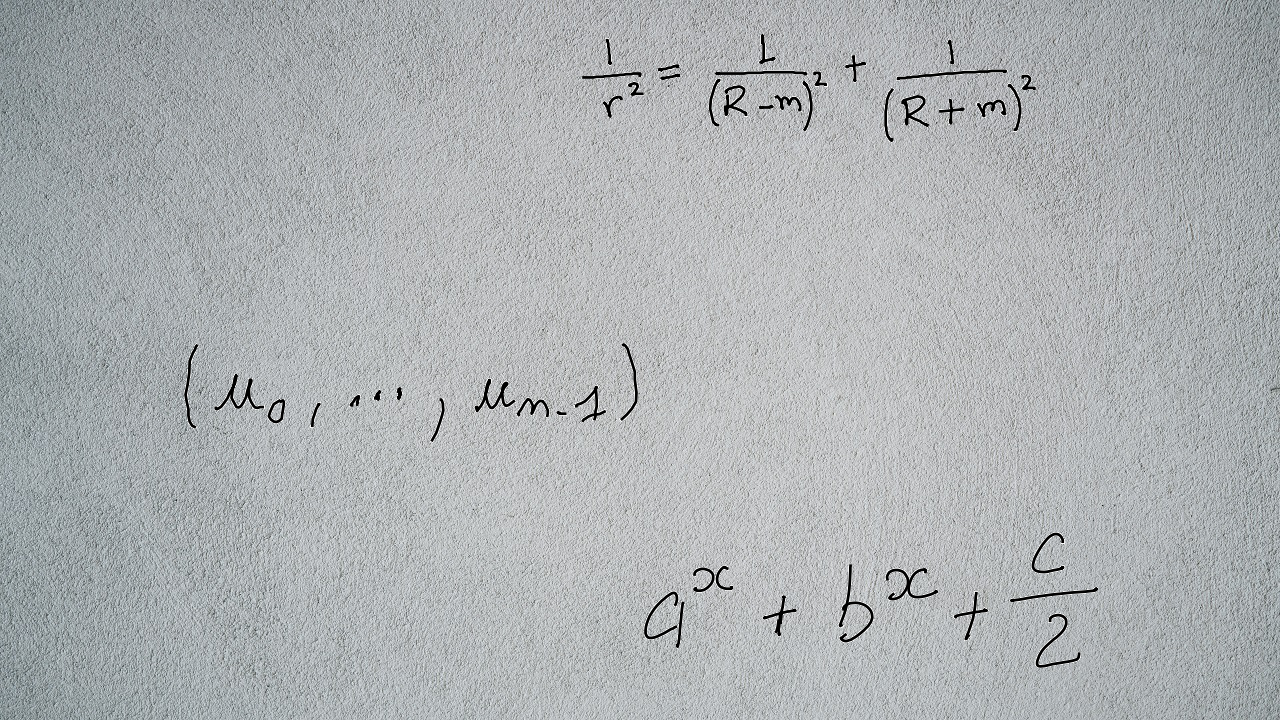 \frac{1}{r^2} = \frac{1}{(R-m)^2} + \frac{1}{(R+m)^2}
(u_0, ..., u_{n-1})
a^x + b^x + \frac{c}{2}